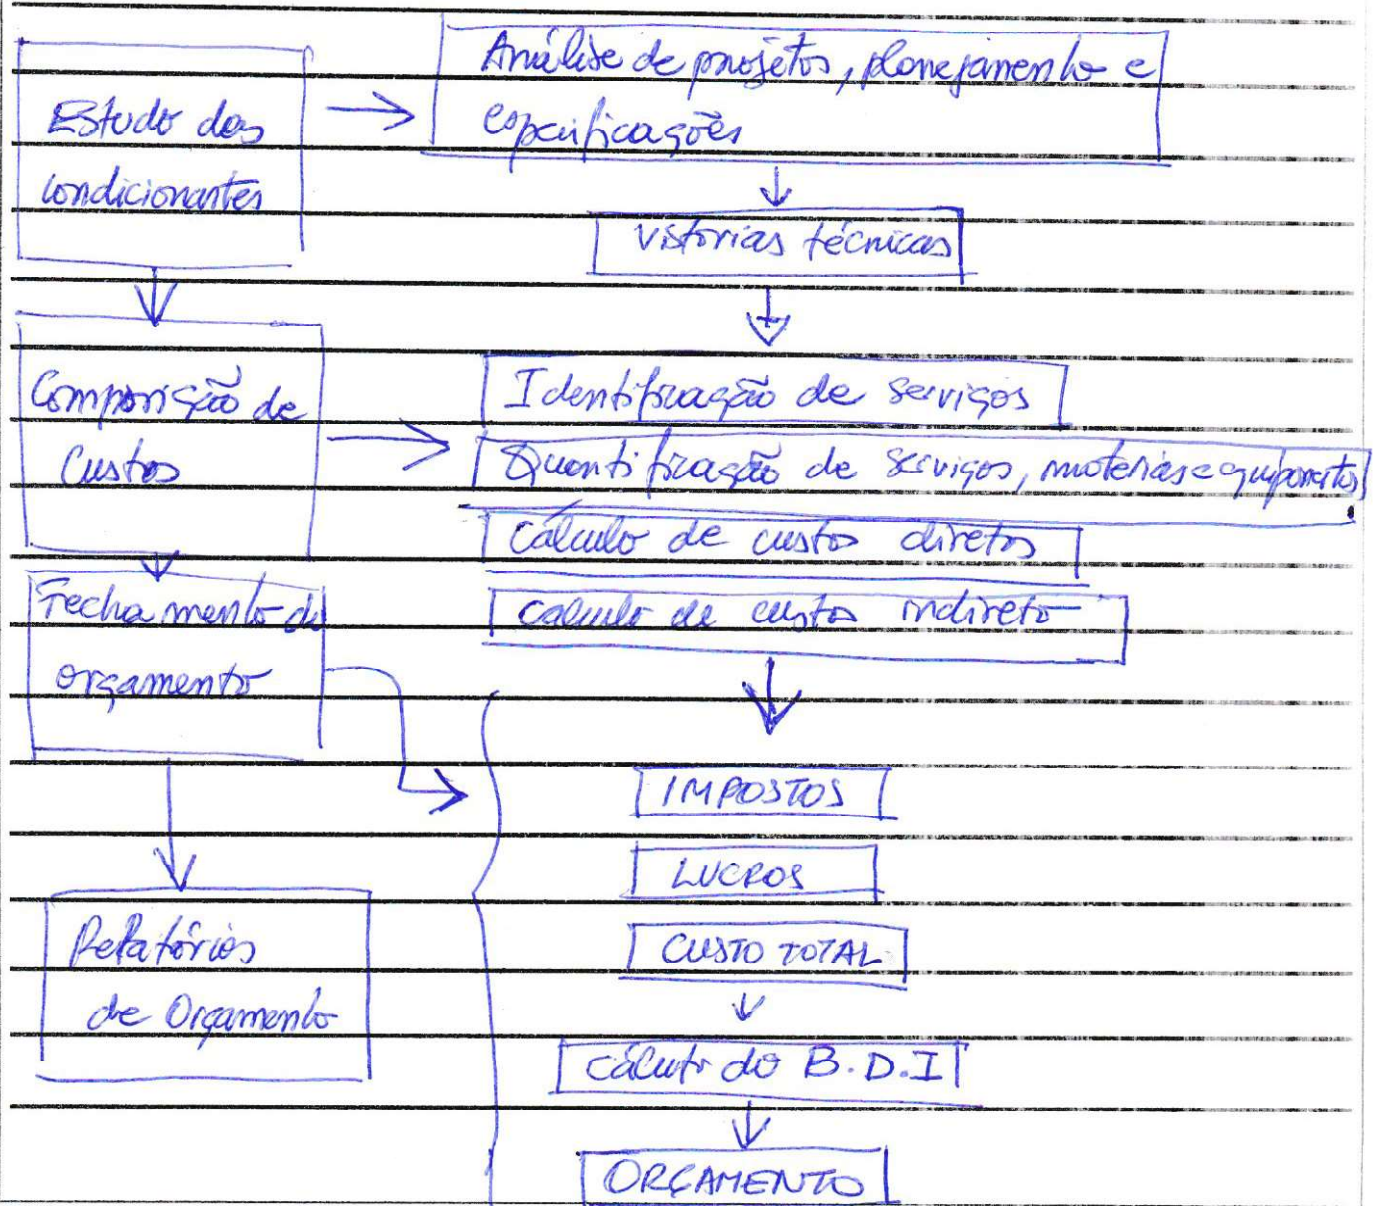 Estudo das
condicionantes
Análise de projetos, planejamento e
especificações
Vistorias técnicas
Composição de
Custos
Identificação de serviços
Quantificação de serviços, materiais e equipamentos
Cálculo de custos diretos
Calculo de custos indireto
Fechamento do
orçamento
IMPOSTOS
LUCROS
CUSTO TOTAL
Relatórios
de Orçamento
Cálculo do B.D.I
ORÇAMENTO